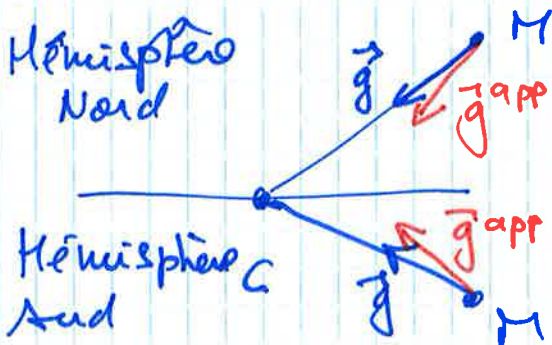 Hémisphère
Nord
M
g⃗
g⃗ app
Hémisphère
Sud
C
g⃗
g⃗ app
M